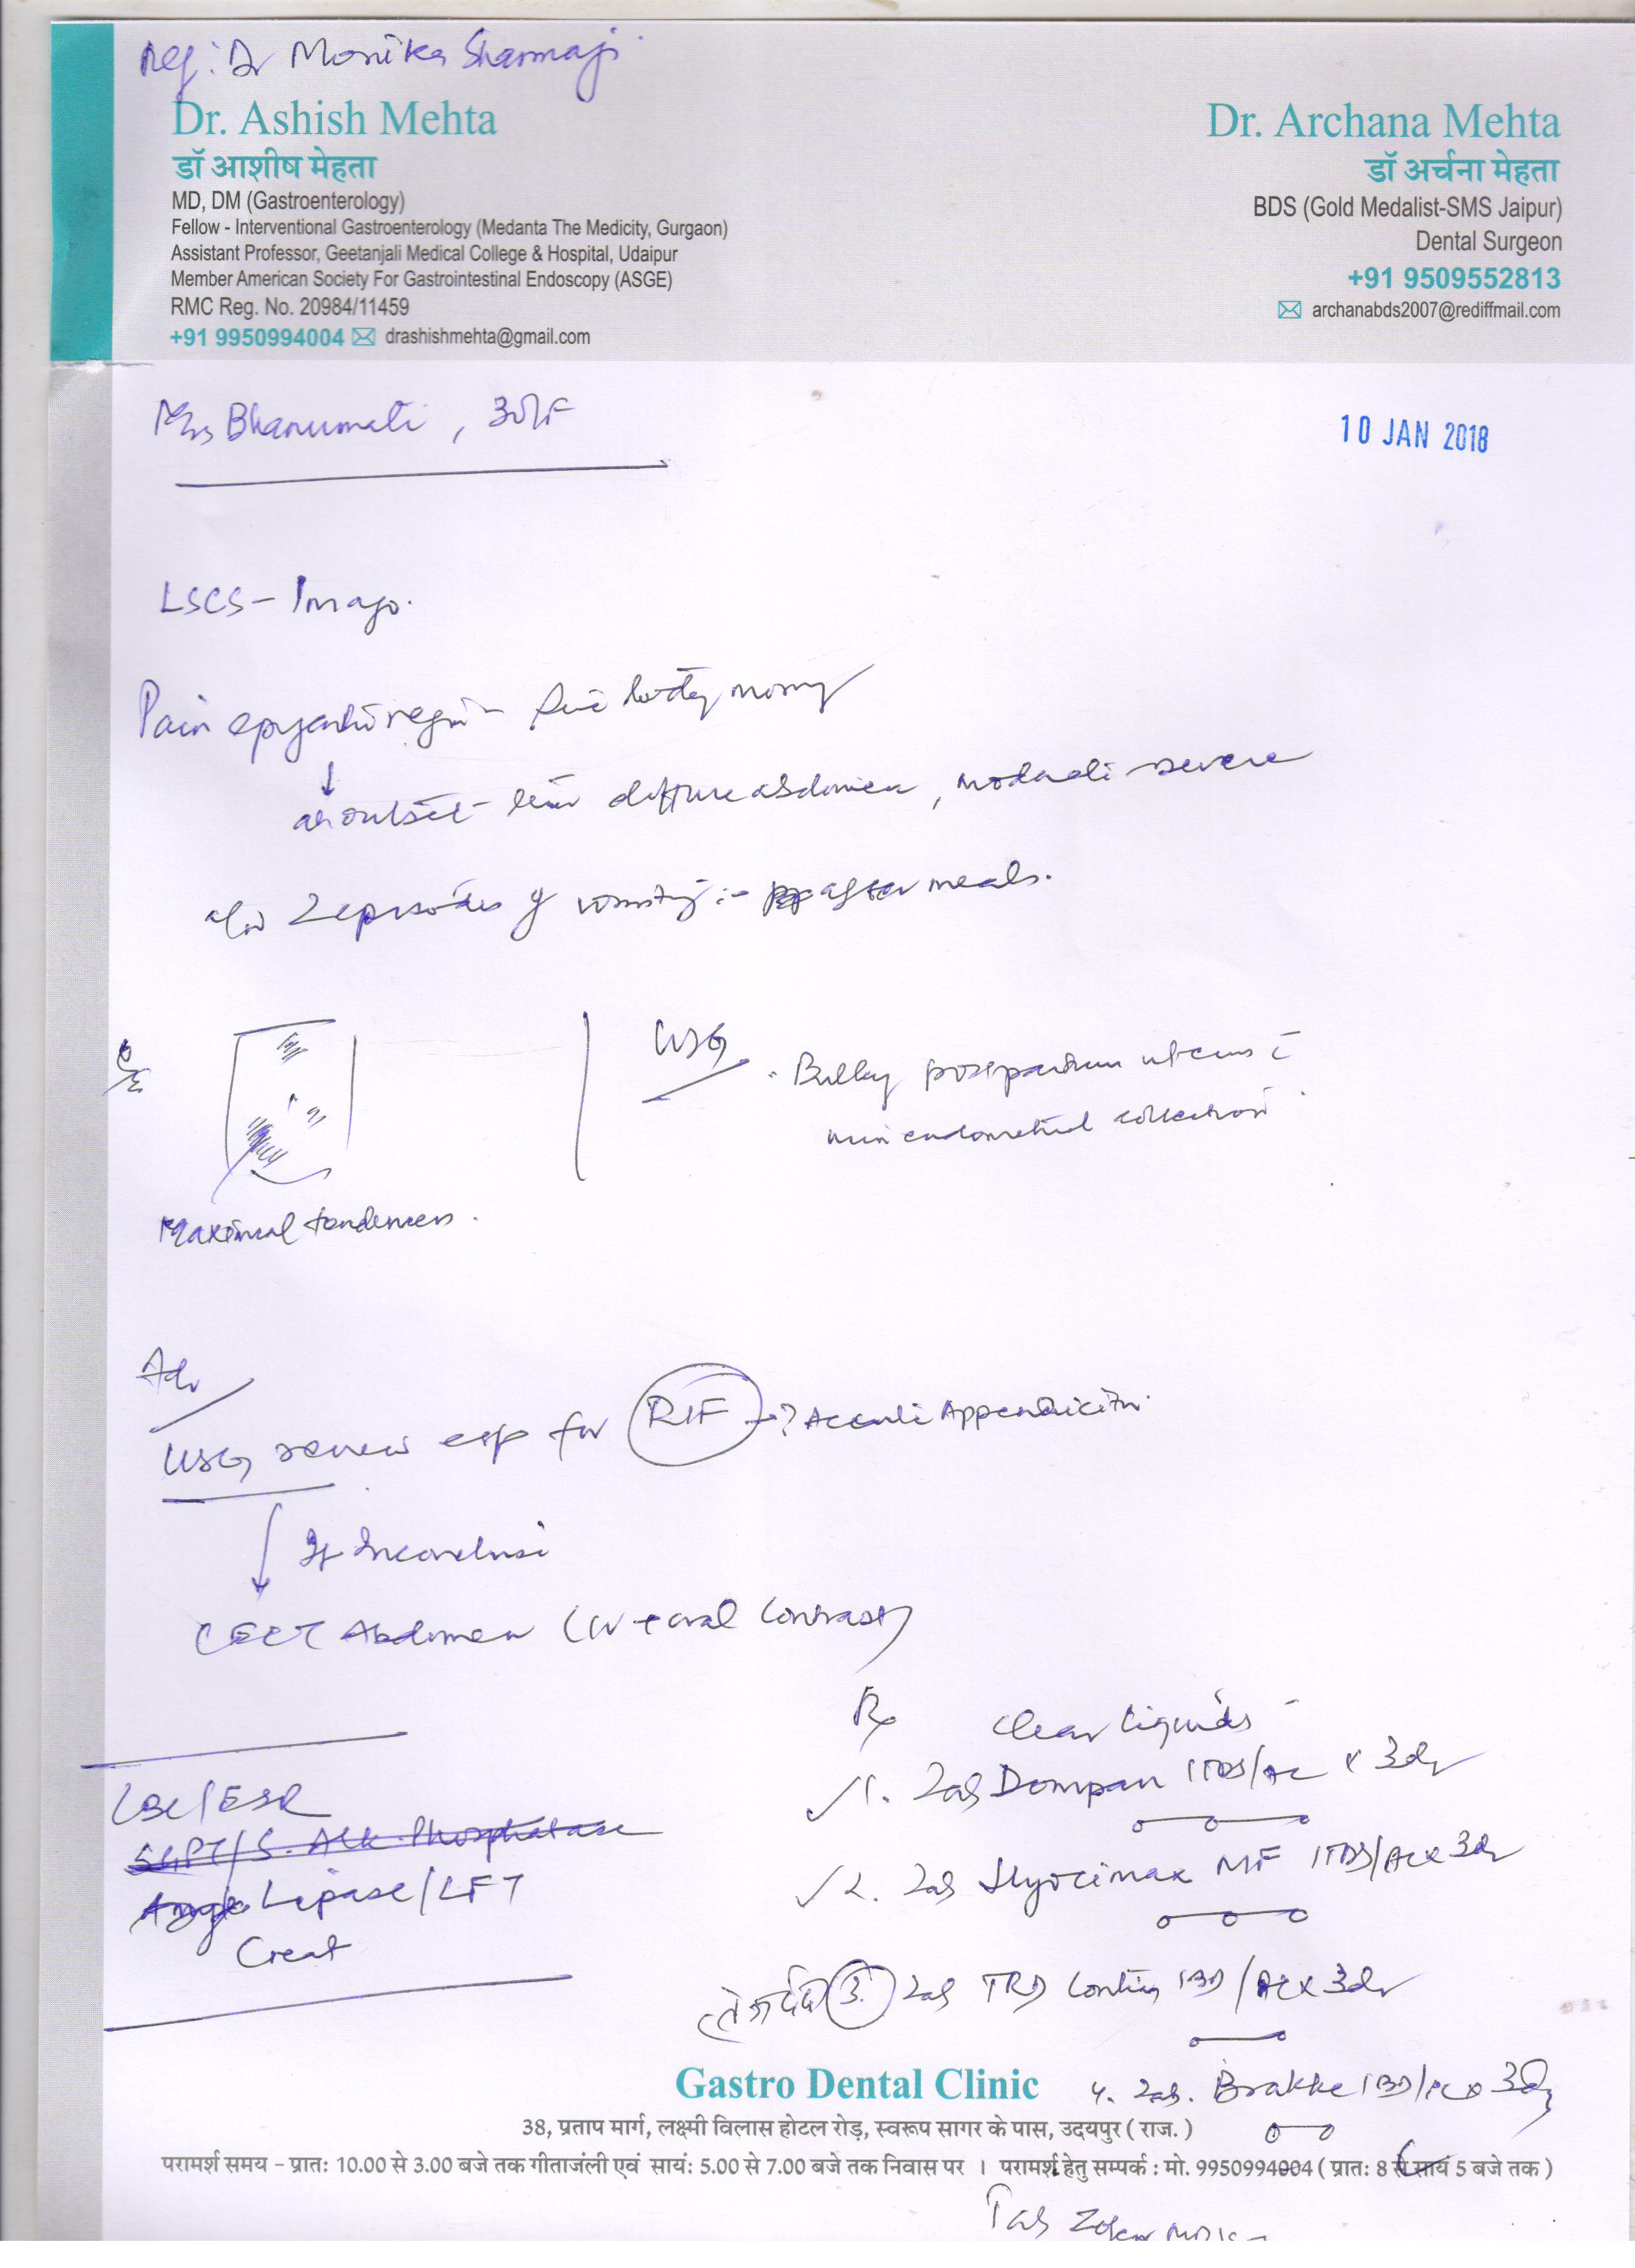 Ref: Dr Monika Sharmaji
Dr. Ashish Mehta
डॉ आशीष मेहता
MD, DM (Gastroenterology)
Fellow - Interventional Gastroenterology (Medanta The Medicity, Gurgaon)
Assistant Professor, Geetanjali Medical College & Hospital, Udaipur
Member American Society For Gastrointestinal Endoscopy (ASGE)
RMC Reg. No. 20984/11459
+91 9950994004 drashishmehta@gmail.com
Dr. Archana Mehta
डॉ अर्चना मेहता
BDS (Gold Medalist-SMS Jaipur)
Dental Surgeon
+91 9509552813
archanabds2007@rediffmail.com
Mrs Bhanumati,
10 JAN 2018
LSCS -
Pain
diffuse abdomen, severe
2 episodes of vomiting :- after meals.
O/E
USG
Bulky postpartum uterus c
endometrial collection
Maximal tenderness.
Adv
USG review esp for RIF → ? Acute Appendicitis.
If Inconclusive
CECT Abdomen (IV + oral Contrast)
CBC/ESR
SGPT/S. Alk. Phosphatase
Lipase/LFT
Creat
Rx Clear liquids
1. Tab Dompan 1TDS/AC x 3d
2. Tab Hyocimax MF 1TDS/AC x 3d
3. Tab TRD Contin 1BD/ x 3d
4. Tab. Brakke 1BD/ x 3d
Gastro Dental Clinic
38, प्रताप मार्ग, लक्ष्मी विलास होटल रोड़, स्वरूप सागर के पास, उदयपुर ( राज. )
परामर्श समय - प्रातः 10.00 से 3.00 बजे तक गीतांजली एवं सायंः 5.00 से 7.00 बजे तक निवास पर । परामर्श हेतु सम्पर्क : मो. 9950994004 ( प्रातः 8 से सायं 5 बजे तक )
Tab